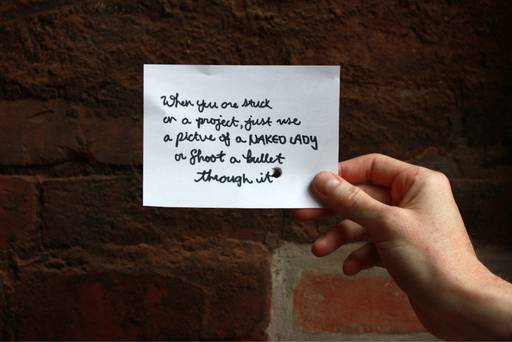 When you are stuck
on a project, just use
a picture of a NAKED LADY
or shoot a bullet
through it